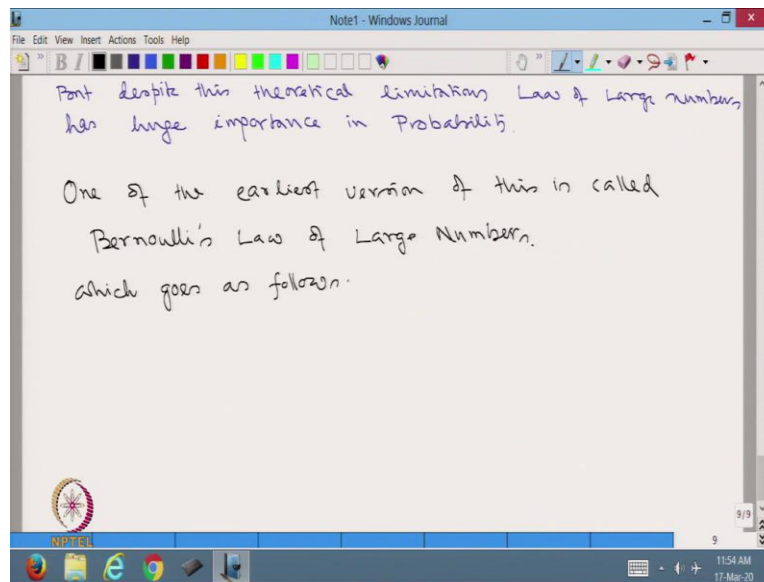 Note1 - Windows Journal
File Edit View Insert Actions Tools Help
But despite this theoretical limitations Law of Large numbers,
has huge importance in Probability.
One of the earliest version of this is called
Bernoulli's Law of Large Numbers.
which goes as follows.
NPTEL
9/9
9
11:54 AM
17-Mar-20